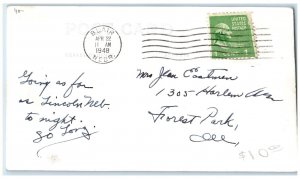 40-
POST CARD
BLAIR
APR 22
11 AM
1948
NEBR.
UNITED STATES
POSTAGE
1
Going as far
as Lincoln Neb.
to night.
So Long.
Mrs Jean Eastman
1305 Harlem Ave
Forest Park,
Ill.
$10.00